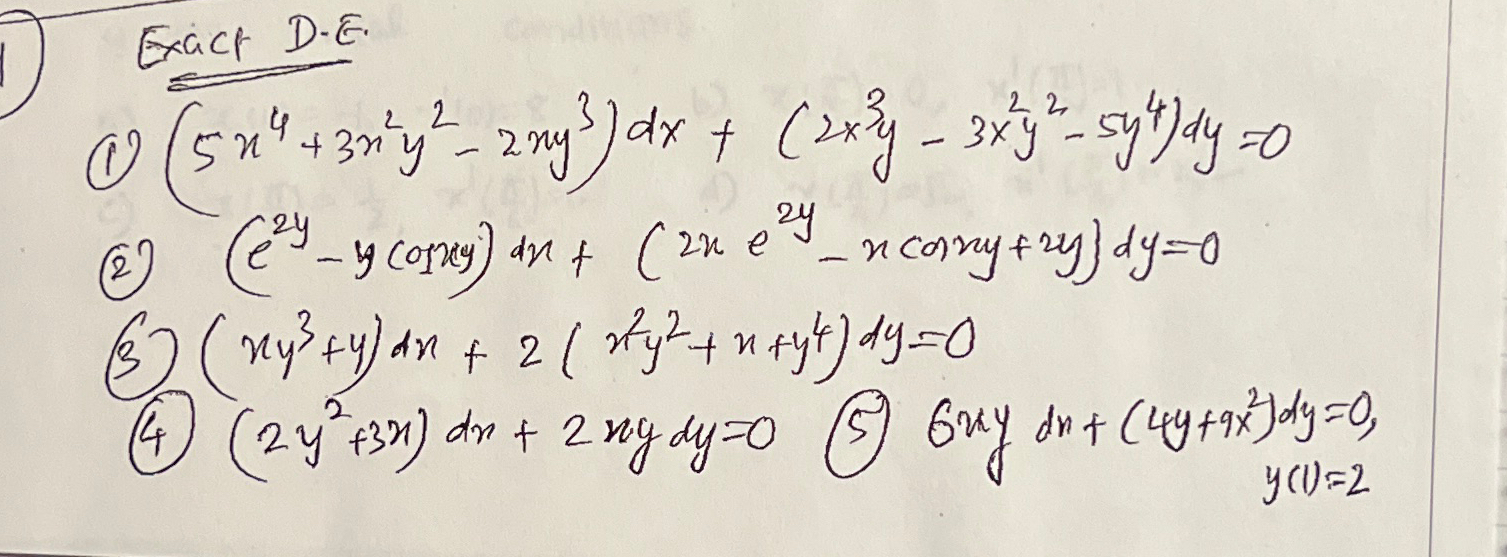 Exact D.E.
① (5x⁴ + 3x²y² - 2xy³) dx + (2x³y - 3x²y² - 5y⁴) dy = 0
② (e^{2y} - y cosxy) dx + (2x e^{2y} - x cosxy + 2y) dy = 0
③ (xy³ + y) dx + 2 (x²y² + x + y⁴) dy = 0
④ (2y² + 3x) dx + 2xy dy = 0 ⑤ 6xy dx + (4y + 9x²) dy = 0,
y(1) = 2